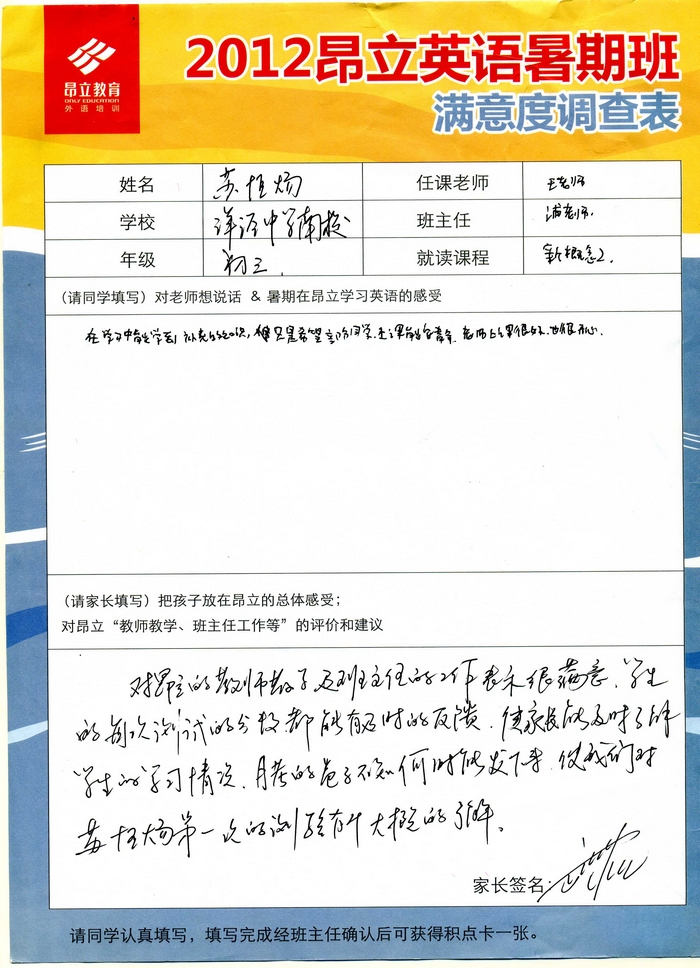 昂立教育
ONLY EDUCATION
外语培训
2012昂立英语暑期班
满意度调查表
姓名 苏恒炀 任课老师 王老师
学校 洋泾中学南校 班主任 浦老师.
年级 初三. 就读课程 新概念2.
（请同学填写）对老师想说话 & 暑期在昂立学习英语的感受
在学习中能学到 的知识, 只是希望 同学 上课能 老师上课很好. 也很开心.
（请家长填写）把孩子放在昂立的总体感受；
对昂立“教师教学、班主任工作等”的评价和建议
对昂立的教师教学及班主任的工作表示很满意. 学生
的每次测试的分数都能有及时的反馈. 使家长能及时了解
学生的学习情况. 月考的卷子不知何时能发下来. 使我们对
苏恒炀第一次的测验有个大概的了解.
家长签名:
请同学认真填写，填写完成经班主任确认后可获得积点卡一张。